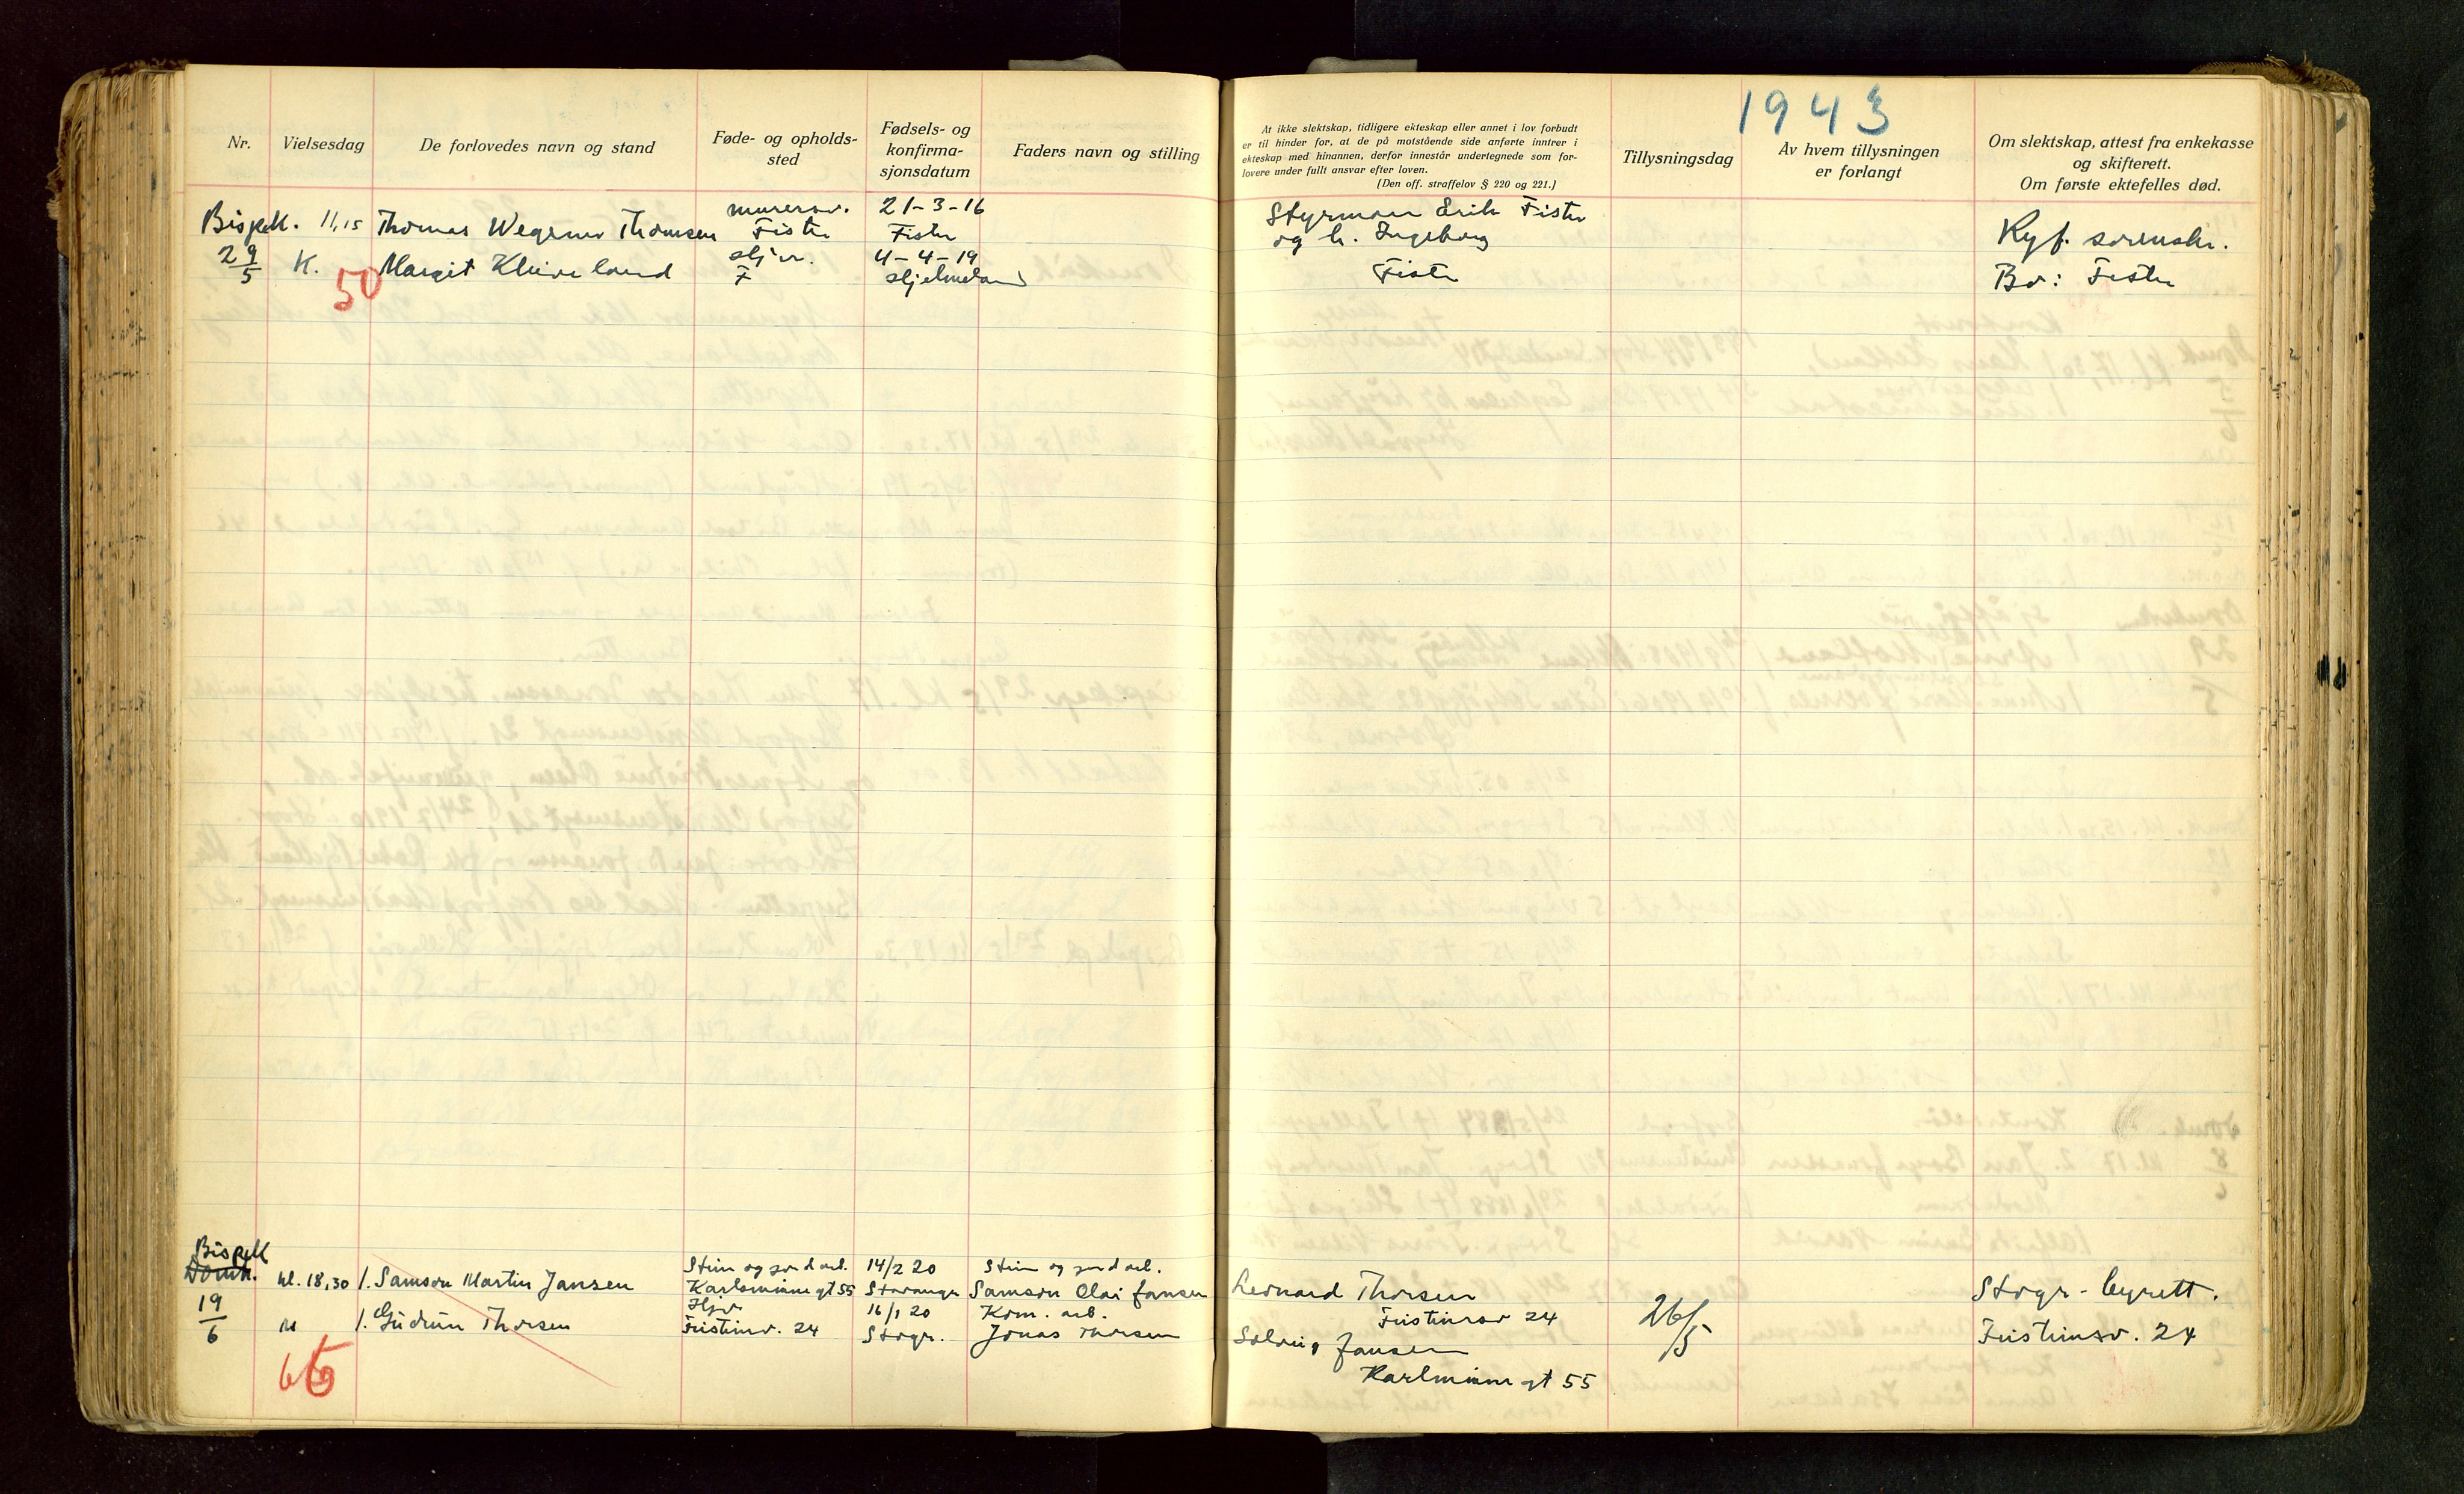 1943
Nr.
Vielsesdag
De forlovedes navn og stand
Føde- og opholds-
sted
Fødsels- og
konfirma-
sjonsdatum
Faders navn og stilling
At ikke slektskap, tidligere ekteskap eller annet i lov forbudt
er til hinder for, at de på motstående side anførte inntrer i
ekteskap med hinannen, derfor innestår undertegnede som for-
lovere under fullt ansvar efter loven.
(Den off. straffelov § 220 og 221.)
Tillysningsdag
Av hvem tillysningen
er forlangt
Om slektskap, attest fra enkekasse
og skifterett.
Om første ektefelles død.
Bispk. 11,15 Thomas Wegner Thomsen
murersv.
Fister
21-3-16
Fister
29/5 K. Margit Kleiveland
F
4-4-19
Hjelmeland
50
Styrmann Erik Fister
og h. Ingeborg
Fister
Ryf. sorenskr.
Bo: Fister
Bispk
Domk. kl. 18,30 1. Samson Martin Jansen
Stein og jord arb.
Karlsminnegt 55
14/2 20
Stavanger
Stein og jord arb.
Samson Olai Jansen
19/6 1. Gudrun Thorsen
Hjv
24
16/1 20
Stvgr.
Kom. arb.
Jonas Thorsen
65
Leonard Thorsen
24
Solveig Jansen
Karlsminnegt 55
26/5
Stvgr. byrett.
24